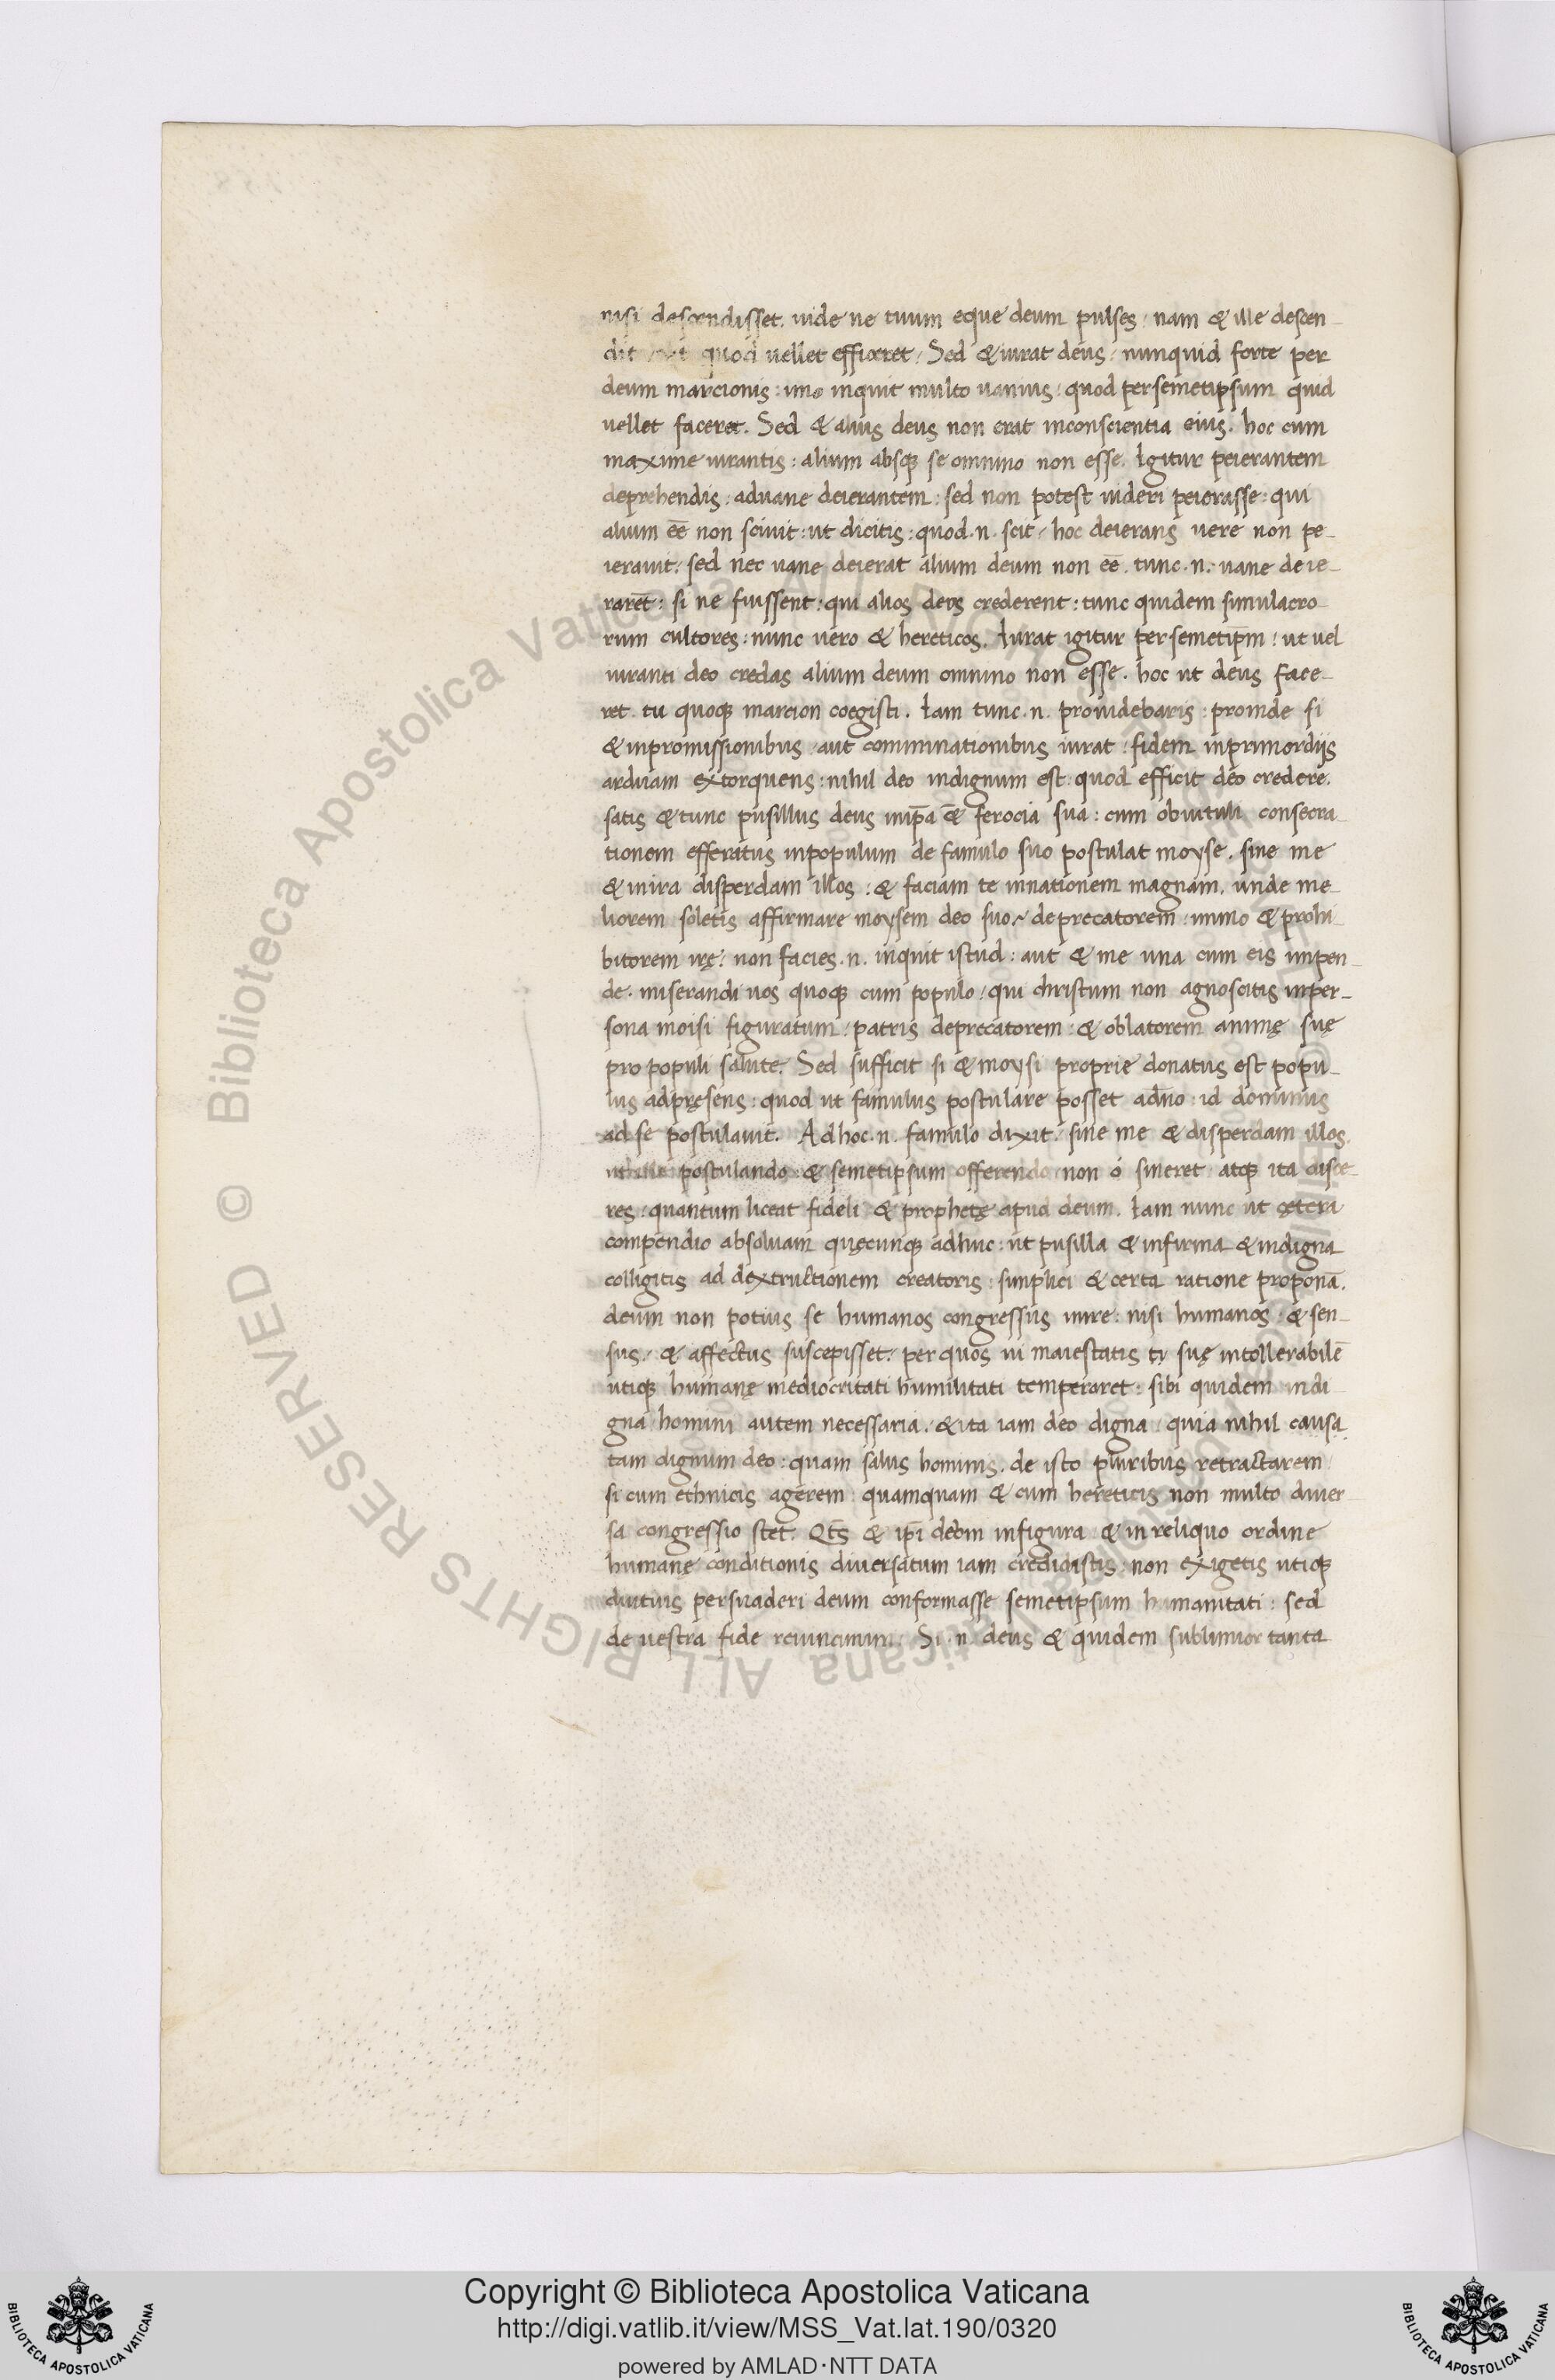 nisi descendisset. uide ne tuum eque deum pulses. nam & ille descen-
dit quod uellet efficeret. Sed & iurat deus. nunquid forte per
deum marcionis: imo inquit multo uanius. quod persemetipsum quid
uellet faceret. Sed & alius deus non erat inconscientia eius. hoc cum
maxime iurantis: alium absq; se omnino non esse. Igitur peierantem
deprehendis: aduane deierantem: sed non potest uideri peierasse: qui
alium eē non sciuit: ut dicitis: quod .n. scit. hoc deierans uere non pe-
ierauit. sed nec uane deierat alium deum non eē. tunc .n. uane deie-
raret̄: si ne fuissent: qui alios deos crederent: tunc quidem simulacro-
rum cultores: nunc uero & hereticos. Iurat igitur persemetip̄m: ut uel
iuranti deo credas alium deum omnino non esse. hoc ut deus face-
ret. tu quoq; marcion coegisti. Iam tunc .n. prouidebaris: proinde si
& inpromissionibus aut comminationibus iurat: fidem inprimordijs
arduam extorquens: nihil deo indignum est quod efficit deo credere.
satis & tunc pusillus deus inip̄a & ferocia sua: cum obuituli consecra-
tionem efferatus inpopulum de famulo suo postulat moyse. sine me
& inira disperdam illos: & faciam te innationem magnam. unde me-
liorem soletis affirmare moysem deo suo deprecatorem: immo & prohi-
bitorem irę. non facies .n. inquit istud: aut & me una cum eis impen-
de. miserandi uos quoq; cum populo: qui christum non agnoscitis inper-
sona moisi figuratum: patris deprecatorem: & oblatorem animę suę
pro populi salute. Sed sufficit si & moysi proprie donatus est popu-
lus adpręsens: quod ut famulus postulare posset adn̄o: id dominus
ad se postulauit. Adhoc .n. famulo dixit. sine me & disperdam illos.
ut ille postulando: & semetipsum offerendo non ó sineret atq; ita disce-
res: quantum liceat fideli & prophetę apud deum. Iam nunc ut cętera
compendio absoluam quęcunq; adhuc: ut pusilla & infirma & indigna
colligitis ad dextructionem creatoris: simplici & certa ratione proponā.
deum non potius se humanos congressus inire: nisi humanos & sen-
sus. & affectus suscepisset. per quos ui maiestatis suę intollerabilē
utiq; humanę mediocritati humilitati temperaret: sibi quidem indi
gna homini autem necessaria. & ita iam deo digna. quia nihil causa
tam dignum deo: quam salus hominis. de isto pluribus retractarem
si cum ethnicis agerem: quamquam & cum hereticis non multo diuer
sa congressio stet. Qt̄s & ip̄i deum infigura & inreliquo ordine
humanę conditionis diuersatum iam credidistis: non exigetis utiq;
diutius persuaderi deum conformasse semetipsum humanitati: sed
de uestra fide reuincimur. Si .n. deus & quidem sublimior tanta
© Biblioteca Apostolica Vaticana ALL RIGHTS RESERVED
Copyright © Biblioteca Apostolica Vaticana
http://digi.vatlib.it/view/MSS_Vat.lat.190/0320
powered by AMLAD·NTT DATA
BIBLIOTECA APOSTOLICA VATICANA
BIBLIOTECA APOSTOLICA VATICANA